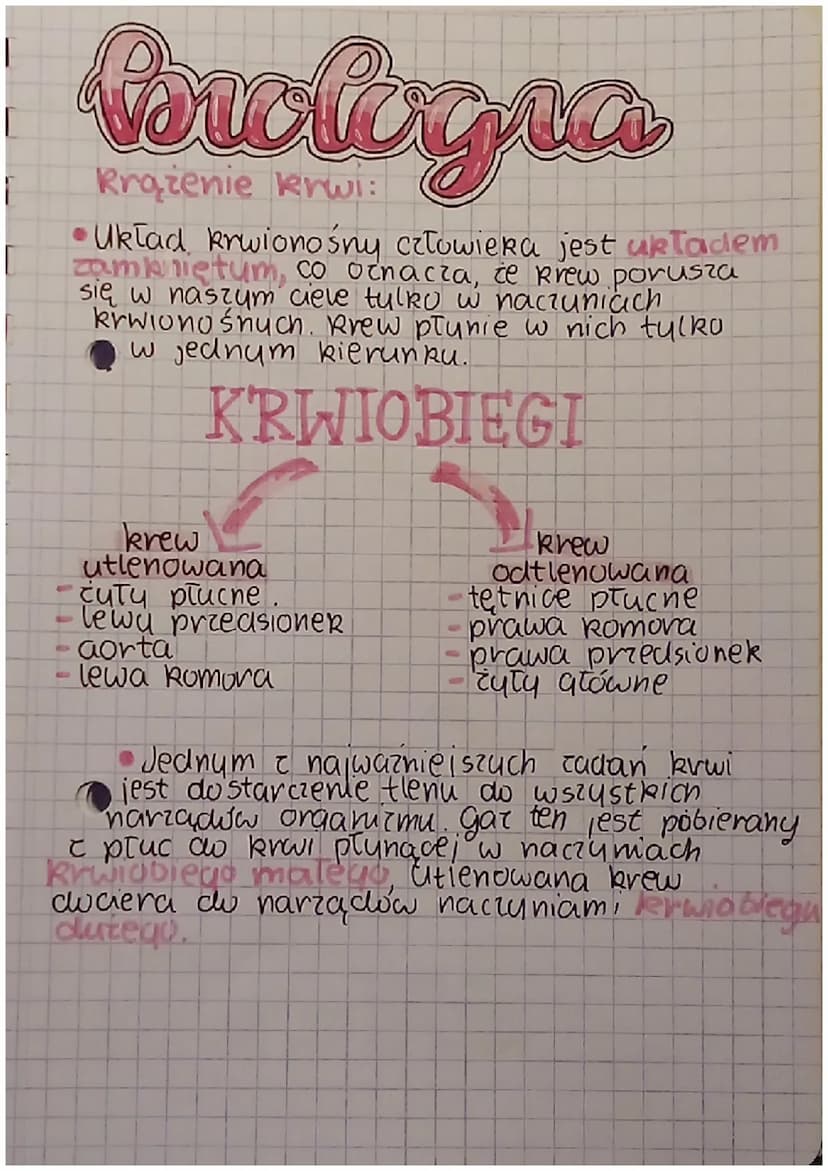 biologia
krążenie krwi:
• Układ krwionośny człowieka jest układem
zamkniętym, co oznacza, że krew porusza
się w naszym ciele tylko w naczyniach
krwionośnych. Krew płynie w nich tylko
w jednym kierunku.
KRWIOBIEGI
krew
utlenowana
- żyły płucne.
- lewy przedsionek
- aorta
- lewa komora
krew
odtlenowana
- tętnice płucne
- prawa komora
- prawa przedsionek
- żyły główne
• Jednym z najważniejszych zadań krwi
jest dostarczenie tlenu do wszystkich
narządów organizmu. Gaz ten jest pobierany
z płuc do krwi płynącej w naczyniach
krwiobiego małego, Utlenowana krew
dociera do narządów naczyniami krwiobiegu
dużego.